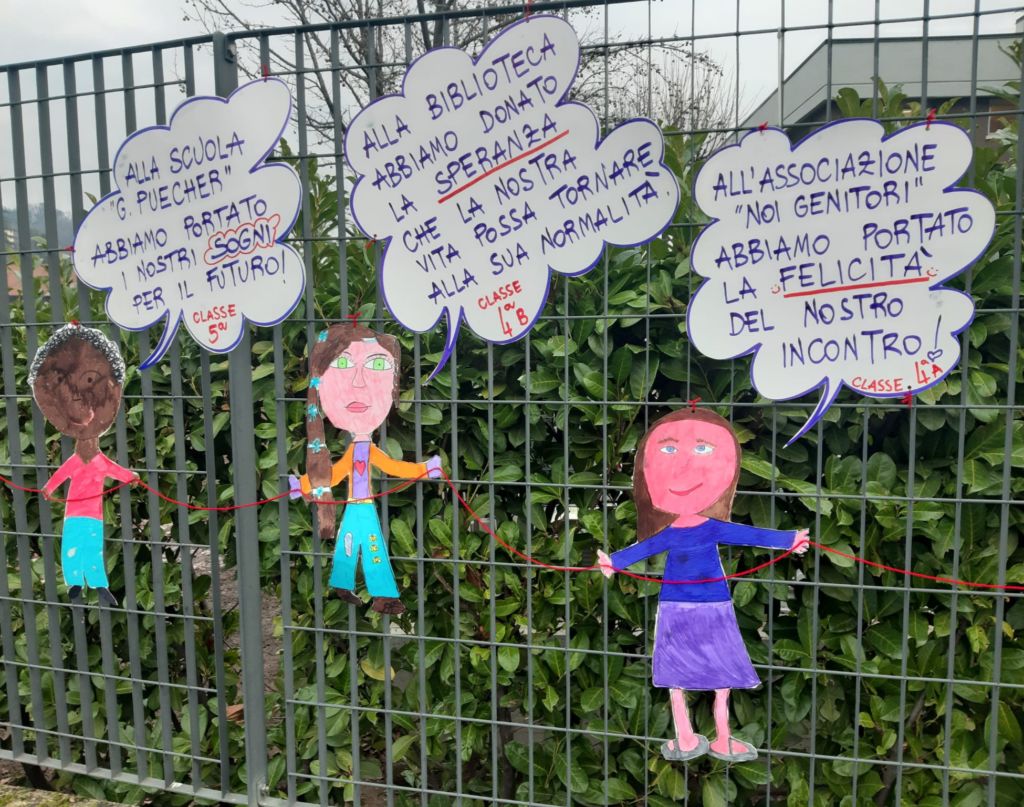 ALLA SCUOLA
"G. PUECHER"
ABBIAMO PORTATO
I NOSTRI SOGNI
PER IL FUTURO!
CLASSE
5ª
ALLA BIBLIOTECA
ABBIAMO DONATO
LA SPERANZA
CHE LA NOSTRA
VITA POSSA TORNARE
ALLA SUA NORMALITÀ.
CLASSE
4ª B
ALL'ASSOCIAZIONE
"NOI GENITORI"
ABBIAMO PORTATO
LA FELICITÀ
DEL NOSTRO
INCONTRO!
CLASSE. 4ªA